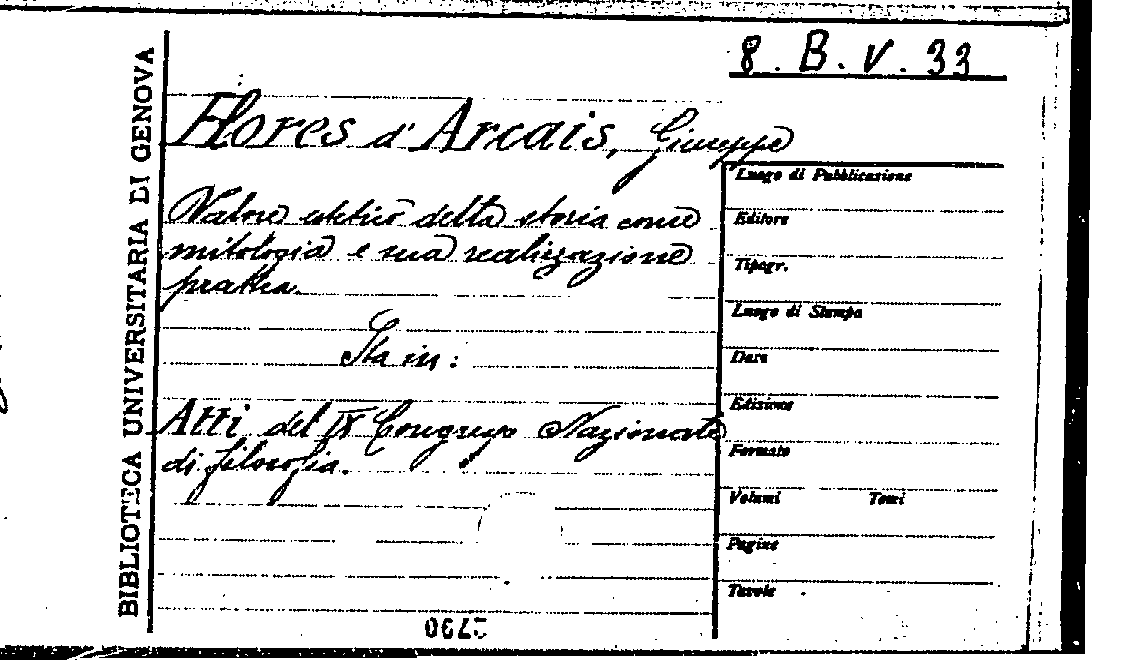 8. B. V. 33
BIBLIOTECA UNIVERSITARIA DI GENOVA
Flores d'Arcais, Giuseppe
Valore della storia come
mitologia e sua realizzazione
pratica.
Sta in:
Atti del IX Congresso Nazionale
di filosofia.
Luogo di Pubblicazione
Editore
Tipogr.
Luogo di Stampa
Data
Edizione
Formato
Volumi Tomi
Pagine
Tavole